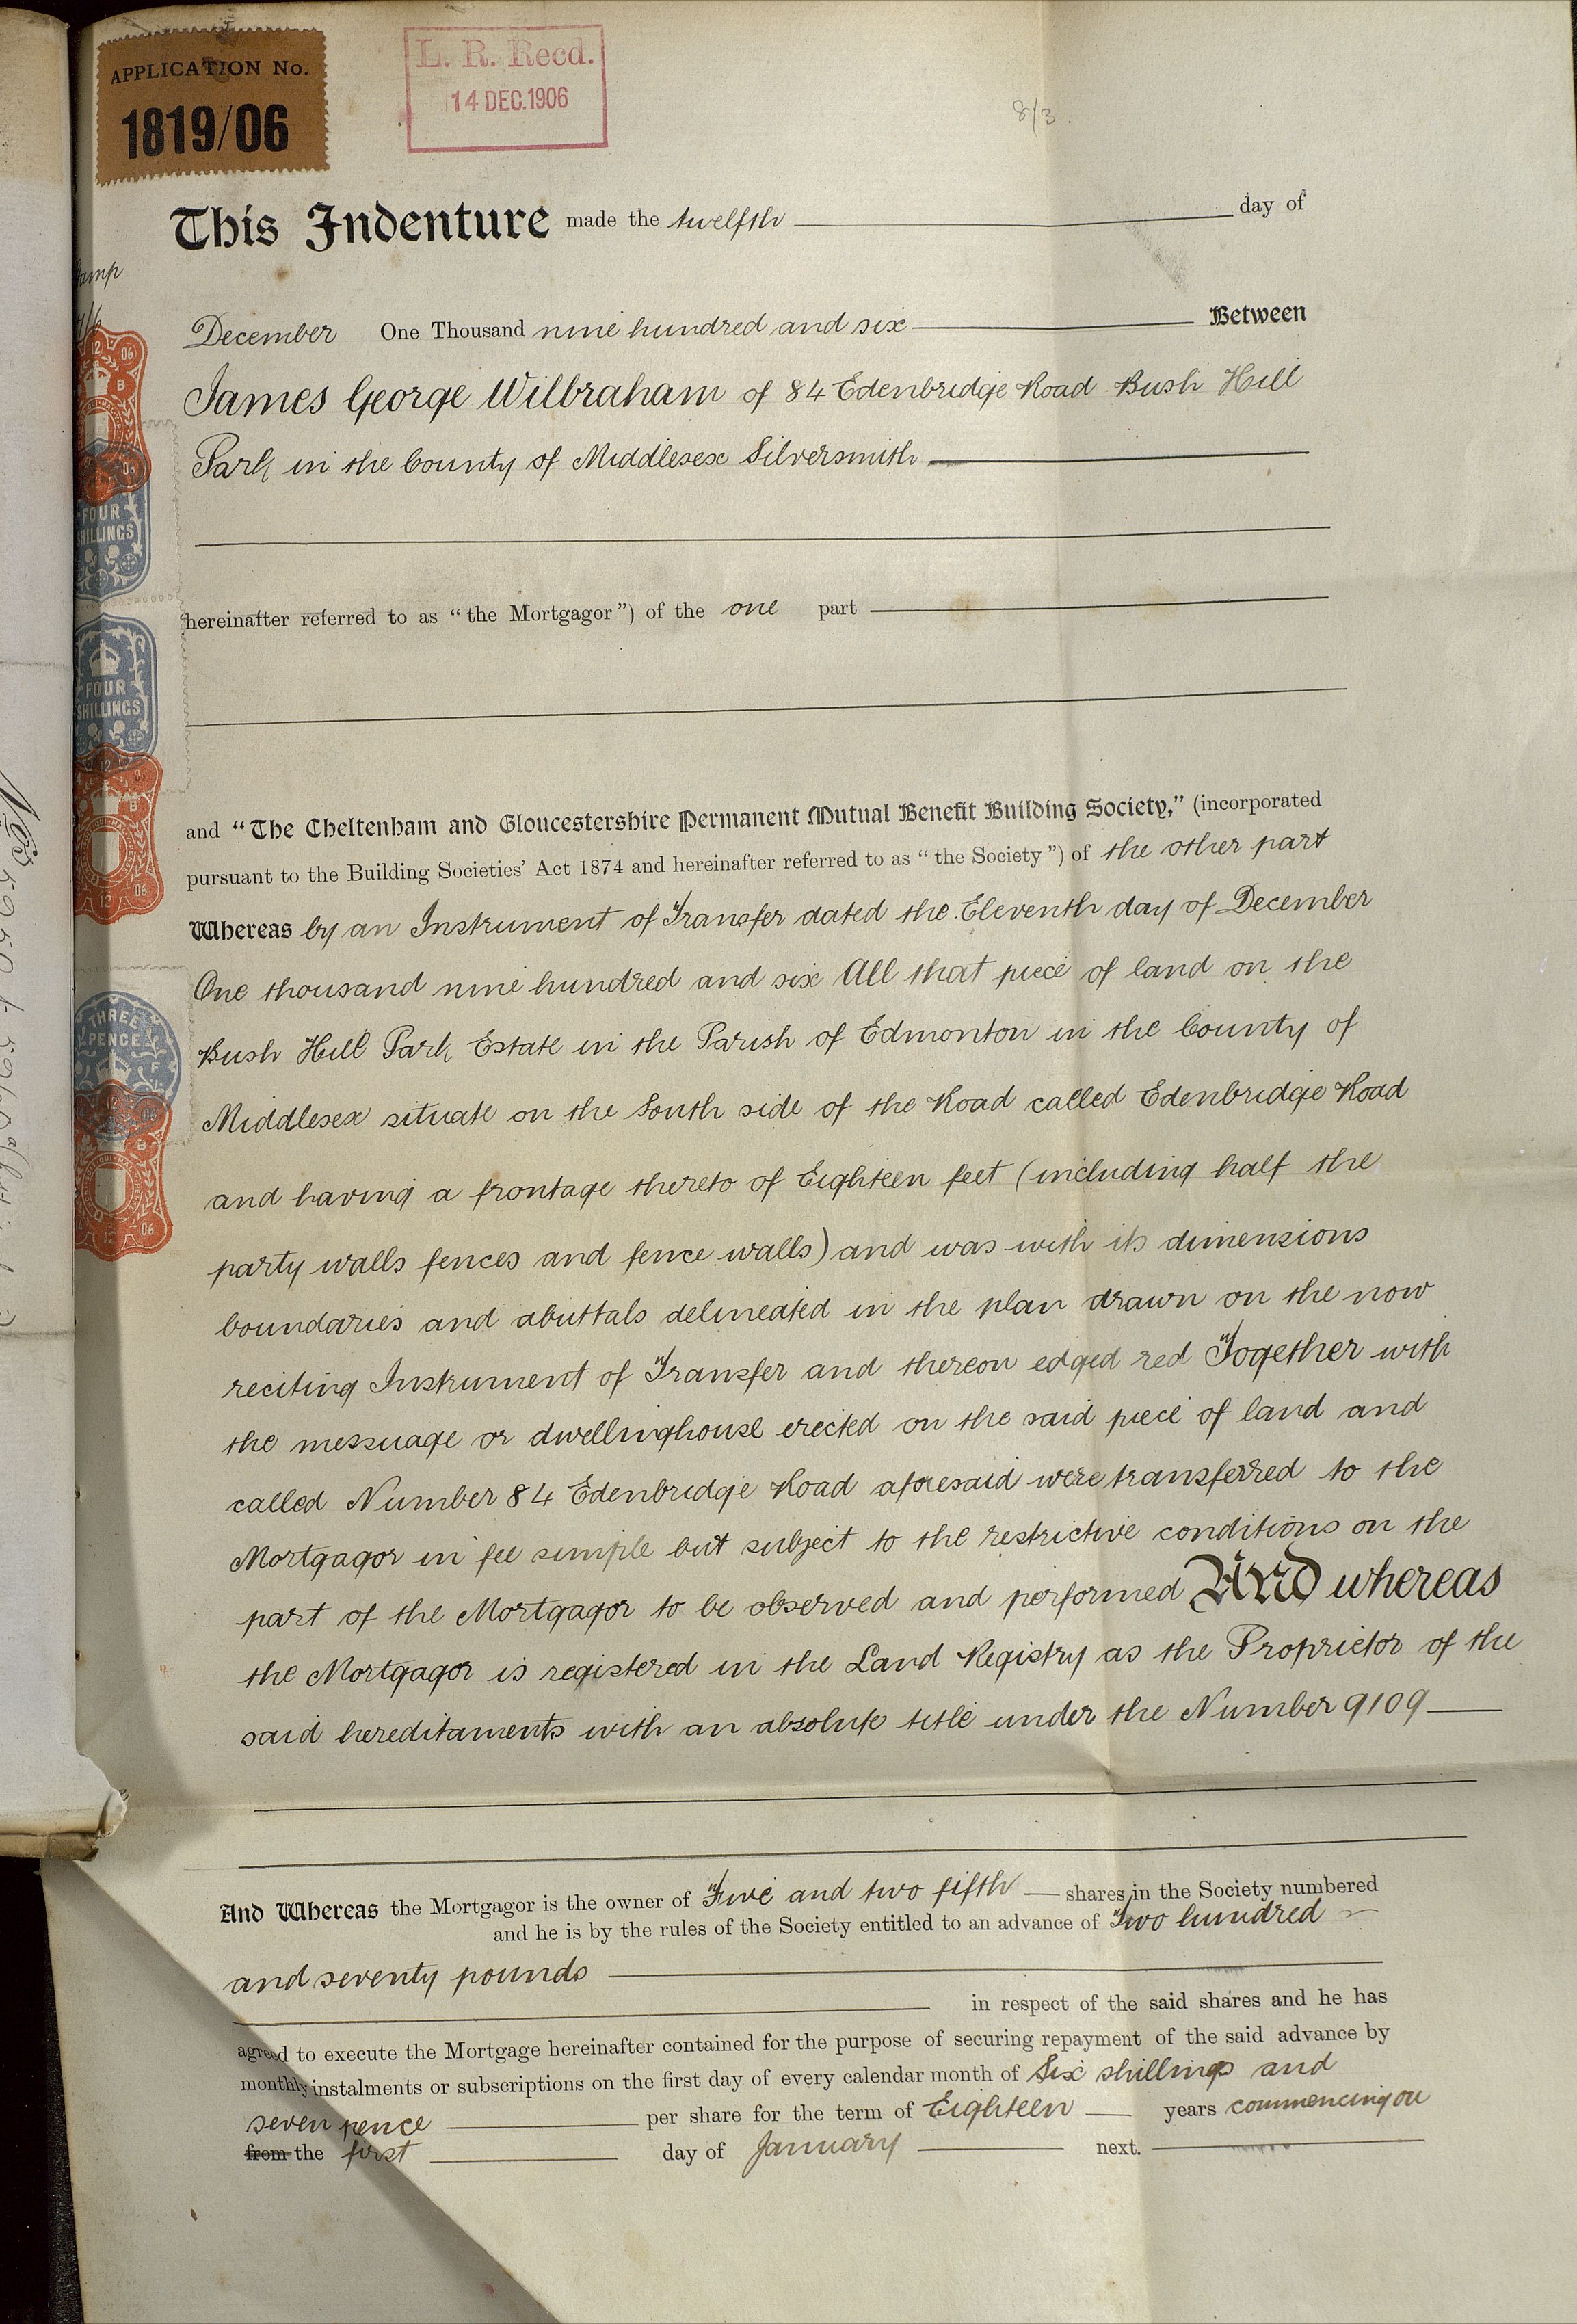 APPLICATION No.
1819/06
L. R. Recd.
14 DEC. 1906
8/3.
This Indenture made the twelfth day of
December One Thousand nine hundred and six Between
James George Wilbraham of 84 Edenbridge Road Bush Hill
Park in the County of Middlesex Silversmith
hereinafter referred to as "the Mortgagor") of the one part
and "The Cheltenham and Gloucestershire Permanent Mutual Benefit Building Society," (incorporated
pursuant to the Building Societies' Act 1874 and hereinafter referred to as "the Society") of the other part
Whereas by an Instrument of Transfer dated the Eleventh day of December
One thousand nine hundred and six All that piece of land on the
Bush Hill Park Estate in the Parish of Edmonton in the County of
Middlesex situate on the South side of the Road called Edenbridge Road
and having a frontage thereto of Eighteen feet (including half the
party walls fences and fence walls) and was with its dimensions
boundaries and abuttals delineated in the plan drawn on the now
reciting Instrument of Transfer and thereon edged red Together with
the messuage or dwellinghouse erected on the said piece of land and
called Number 84 Edenbridge Road aforesaid were transferred to the
Mortgagor in fee simple but subject to the restrictive conditions on the
part of the Mortgagor to be observed and performed And whereas
the Mortgagor is registered in the Land Registry as the Proprietor of the
said hereditaments with an absolute title under the Number 9109
And Whereas the Mortgagor is the owner of Five and two fifth shares in the Society numbered
and he is by the rules of the Society entitled to an advance of Two hundred
and seventy pounds
in respect of the said shares and he has
agreed to execute the Mortgage hereinafter contained for the purpose of securing repayment of the said advance by
monthly instalments or subscriptions on the first day of every calendar month of Six shillings and
seven pence per share for the term of Eighteen years commencing on
from the first day of January next.
FOUR
SHILLINGS
FOUR
SHILLINGS
THREE
PENCE